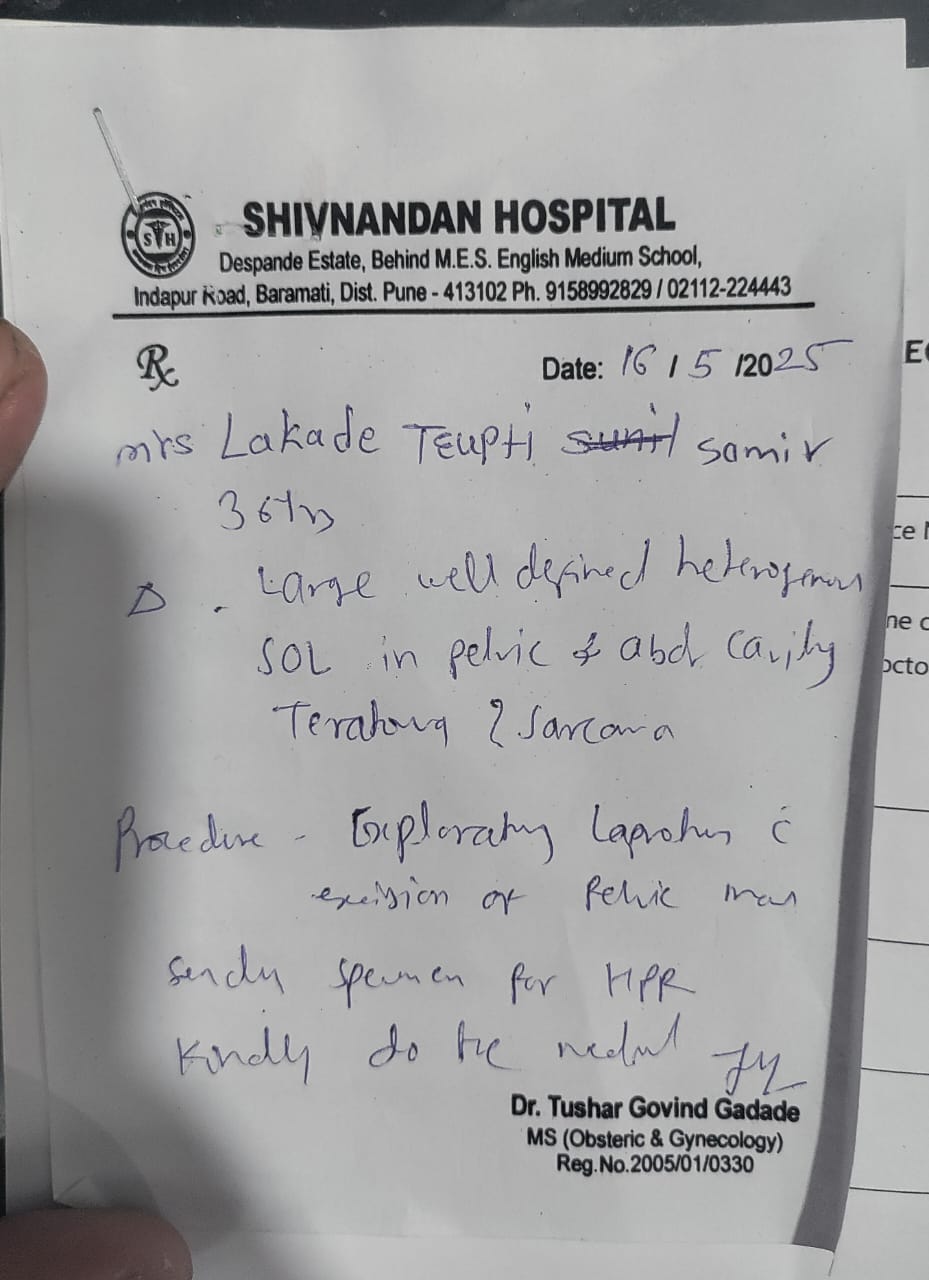 SHIVNANDAN HOSPITAL
STH
Despande Estate, Behind M.E.S. English Medium School,
Indapur Road, Baramati, Dist. Pune - 413102 Ph. 9158992829 / 02112-224443
Rx Date: 16 / 5 /2025
mrs Lakade Teupti sunil samir
36
Large well defined heterogenous
SOL in pelvic & abd cavity
Teratoma ? Sarcoma
Procedure - Exploratory c̄
excision of Pelvic mass
for HPR
Kindly do the
Dr. Tushar Govind Gadade
MS (Obsteric & Gynecology)
Reg.No.2005/01/0330